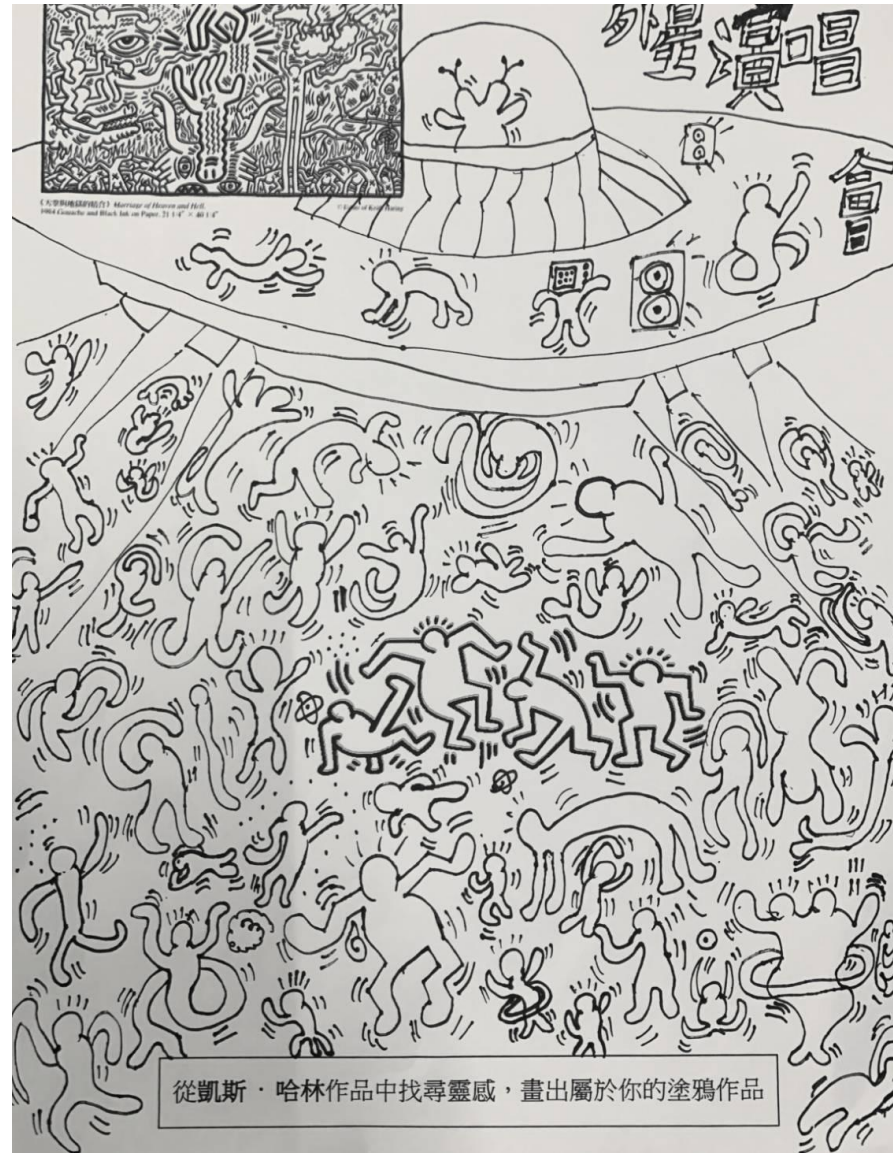 外星演唱
會
《天堂與地獄的結合》 Marriage of Heaven and Hell,
1984 Gouache and Black Ink on Paper, 71 1/4" × 40 1/4"
© Estate of Keith Haring
從凱斯．哈林作品中找尋靈感，畫出屬於你的塗鴉作品